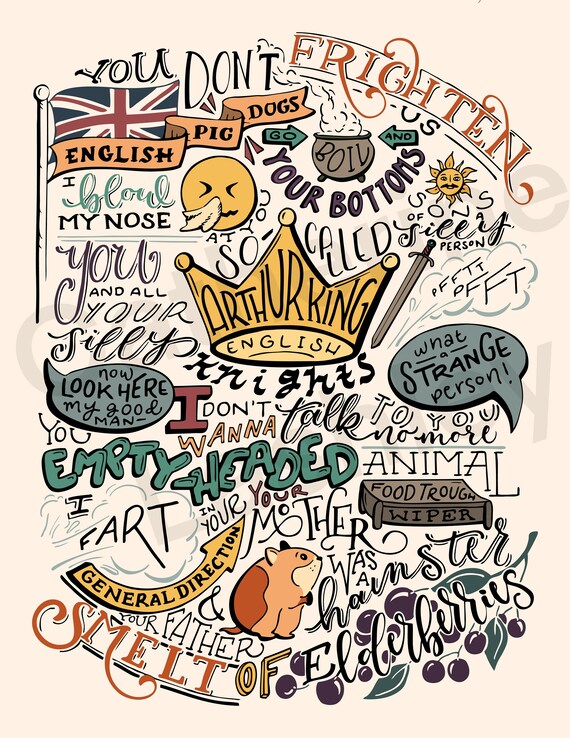 YOU DON'T FRIGHTEN
US
ENGLISH PIG DOGS
GO AND
BOIL
YOUR BOTTOMS
SONS
OF A
silly
PERSON
I blow
MY NOSE
AT YO
SO-CALLED
ARTHUR KING
YOU
AND ALL
YOUR
silly
ENGLISH
knights
PFFTT
PFFT
what
a
STRANGE
person!
now
LOOK HERE
my good
MAN-
I DON'T
WANNA
talk
TO YOU
no more
YOU
EMPTY-HEADED
ANIMAL
FOOD TROUGH
WIPER
I
FART
IN
YOUR
GENERAL DIRECTION
YOUR
MOTHER
WAS
A
hamster
&
YOUR FATHER
SMELT OF Elderberries